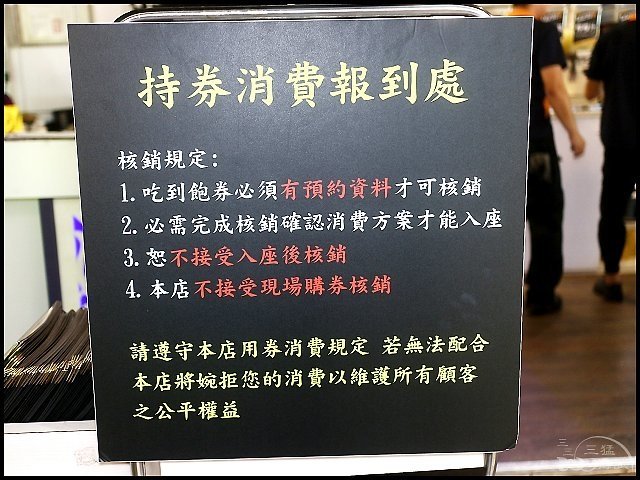 持券消費報到處
核銷規定:
1.吃到飽券必須有預約資料才可核銷
2.必需完成核銷確認消費方案才能入座
3.恕不接受入座後核銷
4.本店不接受現場購券核銷
請遵守本店用券消費規定 若無法配合
本店將婉拒您的消費以維護所有顧客
之公平權益
三猛